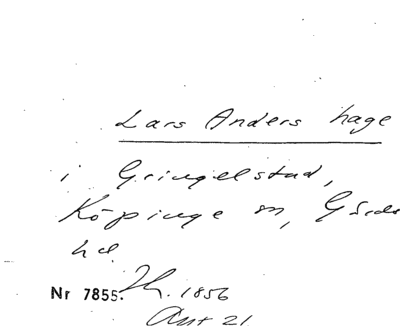 Lars Anders hage
i Gringelstad,
Köpinge sn, Gärds
hd.
Nr 7855. Th. 1856
Ant 21